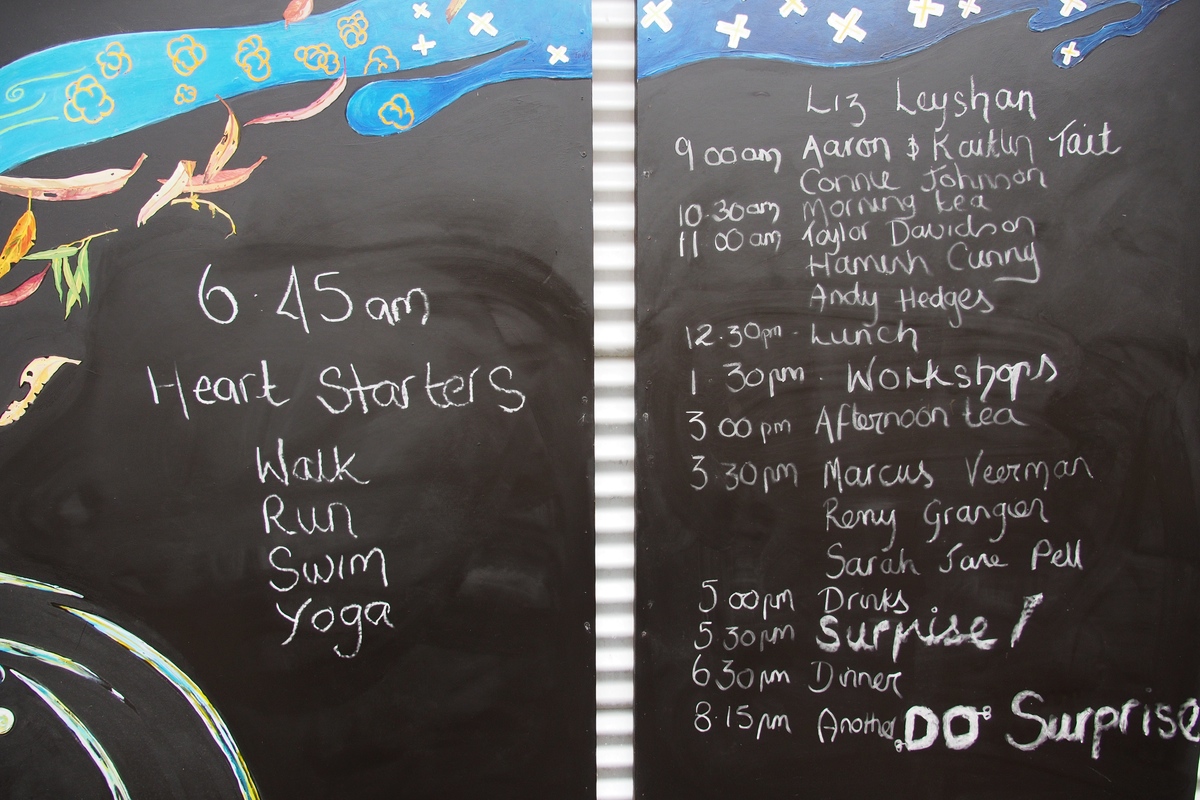 6.45am
Heart Starters
Walk
Run
Swim
Yoga
Liz Leyshan
9 00am Aaron & Kaitlin Tait
Connie Johnson
10.30am Morning tea
11 00am Taylor Davidson
Hamish Curry
Andy Hedges
12.30pm - Lunch
1 30pm. Workshops
3 00pm Afternoon tea
3.30pm Marcus Veerman
Remy Grangien
Sarah Jane Pell
5 00pm Drinks
5 30pm Surprise!
6 30pm Dinner
8.15pm Another DO Surprise